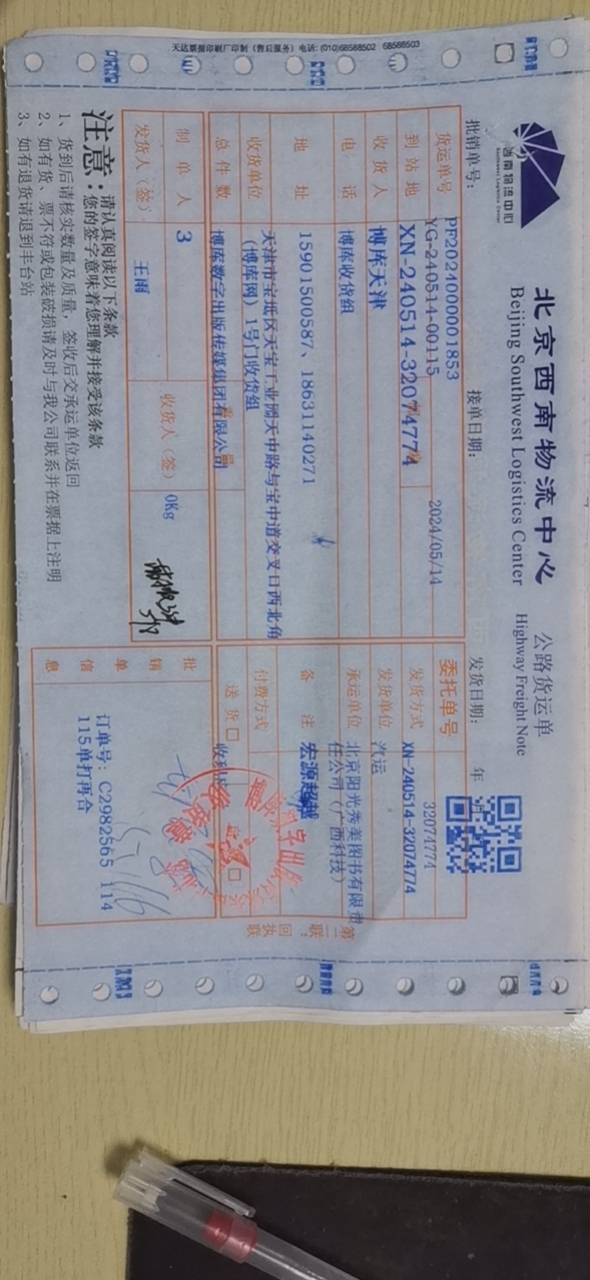 天达票据印刷厂印制（售后服务）电话：(010)68588502 68588503
西南物流中心
Southwest Logistics Center
北京西南物流中心
Beijing Southwest Logistics Center
公路货运单
Highway Freight Note
批销单号：
PF2024000001853
接单日期：
发货日期： 年
货运单号
YG-240514-00115
2024/05/14
委托单号
32074774
到站地
XN-240514-32074774
发货方式
XN-240514-32074774
收货人
博库天津
发货单位
汽运
电话
博库收货组
承运单位
北京阳光秀美图书有限责任公司（广西科技）
地址
15901500587、18631140271
备注
宏源超越
收货单位
天津市宝坻区天宝工业园天中路与宝中道交叉口西北角（博库网）1号门收货组
付费方式
总件数
博库数字出版传媒集团有限公司
送货 □
制单人
3
收货人（签）
0Kg
批销单信息
发货人（签）
王雨
订单号: C2982565 114
115单打再合
第二联：回执联
注意：
请认真阅读以下条款
您的签字意味着您理解并接受该条款
1、货到后请核实数量及质量，签收后交承运单位返回
2、如有货、票不符或包装破损请及时与我公司联系并在票据上注明
3、如有退货请退到丰台站